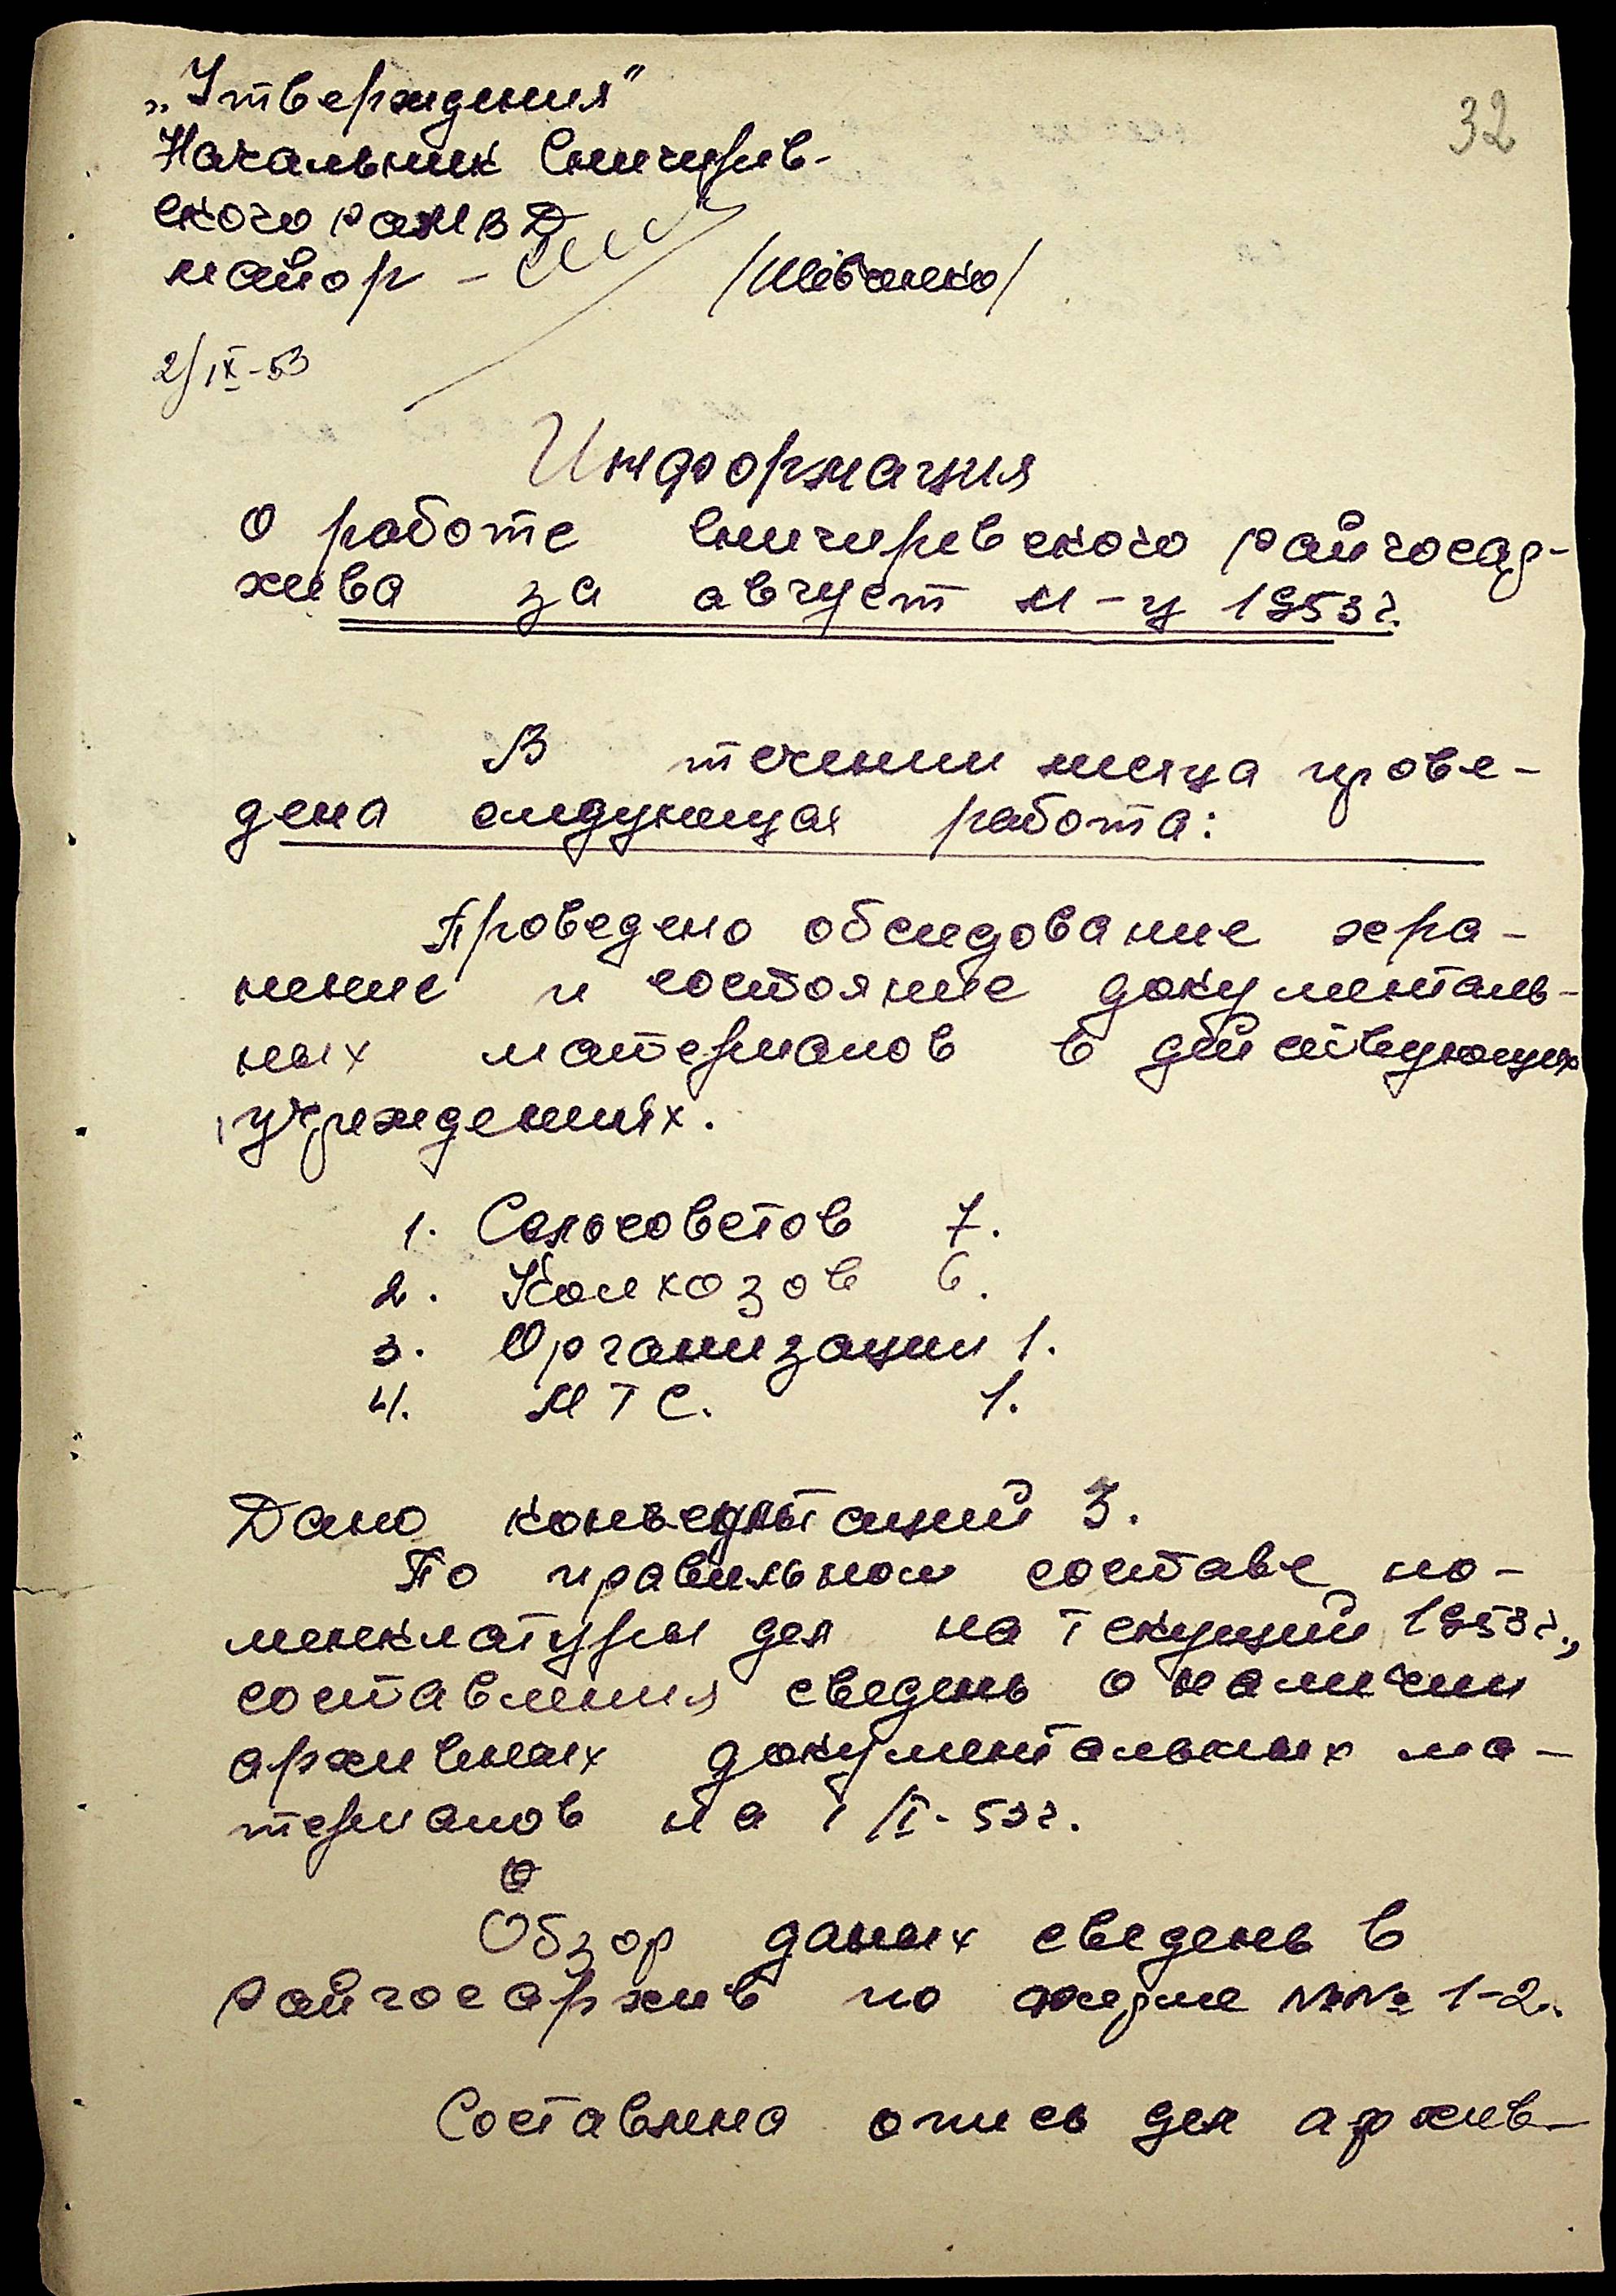 32
„Утверждения"
Начальник Снигирев-
ского раМВД
майор - /Шевченко/
2/IX-53
Информация
О работе Снигиревского райгосар-
хива за август м-ц 1953 г.
В течении месяца прове-
дена следующая работа:
Проведено обследование хра-
нение и состояние документаль-
ных материалов в действующих
учреждениях.
1. Сельсоветов 7.
2. Колхозов 6.
3. Организации 1.
4. МТС. 1.
Дано консультаций 3.
По правильном составе но-
менклатуры дел на текущий 1953 г.,
составления сведень о наличии
архивных документальных ма-
териалов на 1/I-53 г.
Обзор даных сведень в
Райгосархив по форме №№ 1-2.
Составлена опись дел архив-